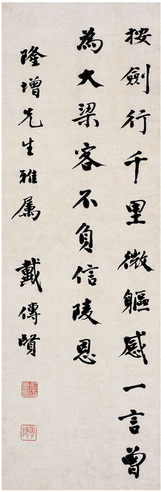 按劍行千里微軀感一言曾
為大梁客不負信陵恩
隆增先生雅屬 戴傳賢